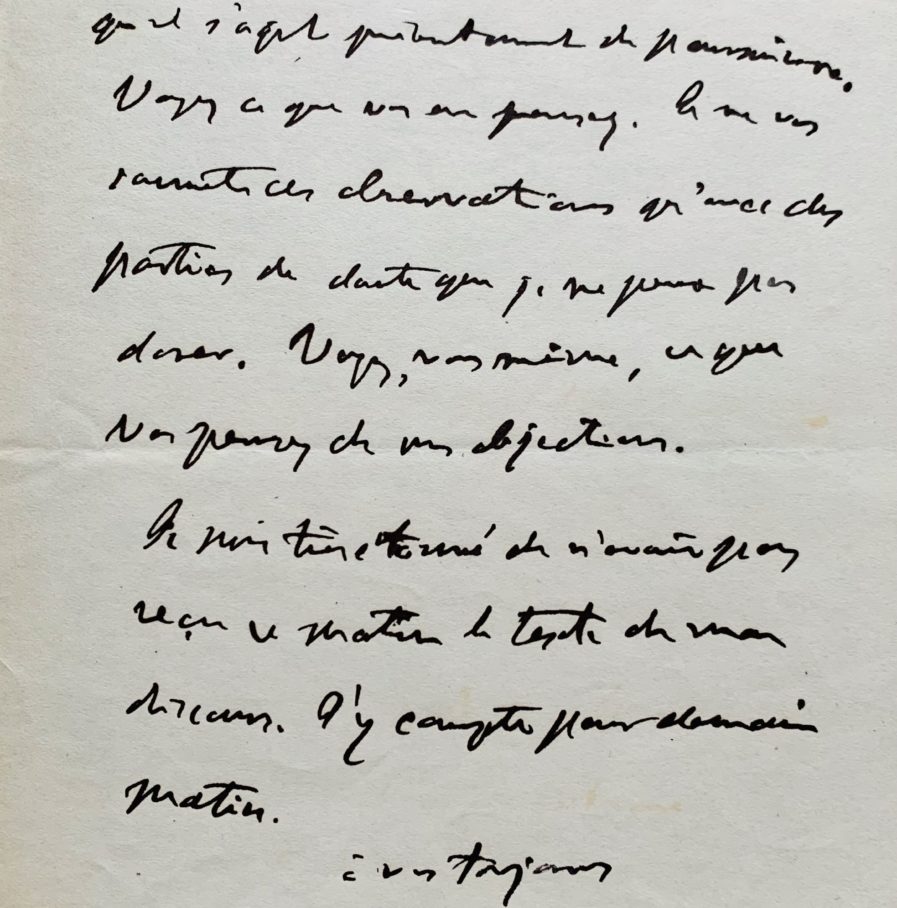 qu'il s'agit présentement de poursuivre.
Voyez ce que vous en pensez. Je ne vous
soumets ces observations qu'avec des
parties de doute que je ne peux pas
doser. Voyez, vous même, ce que
vous pensez de mes objections.
Je suis très étonné de n'avoir pas
reçu ce matin le texte de mon
discours. J'y compte pour demain
matin.
à vous toujours